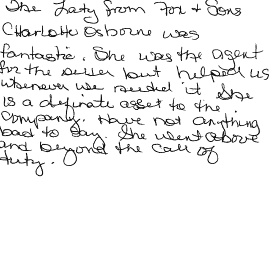 The Lady from Fox & Sons
Charlotte Osborne was
fantastic. She was the agent
for the seller but helped us
whenever we needed it she
is a definate asset to the
company. Have not anything
bad to say. She went above
and beyond the call of
duty.